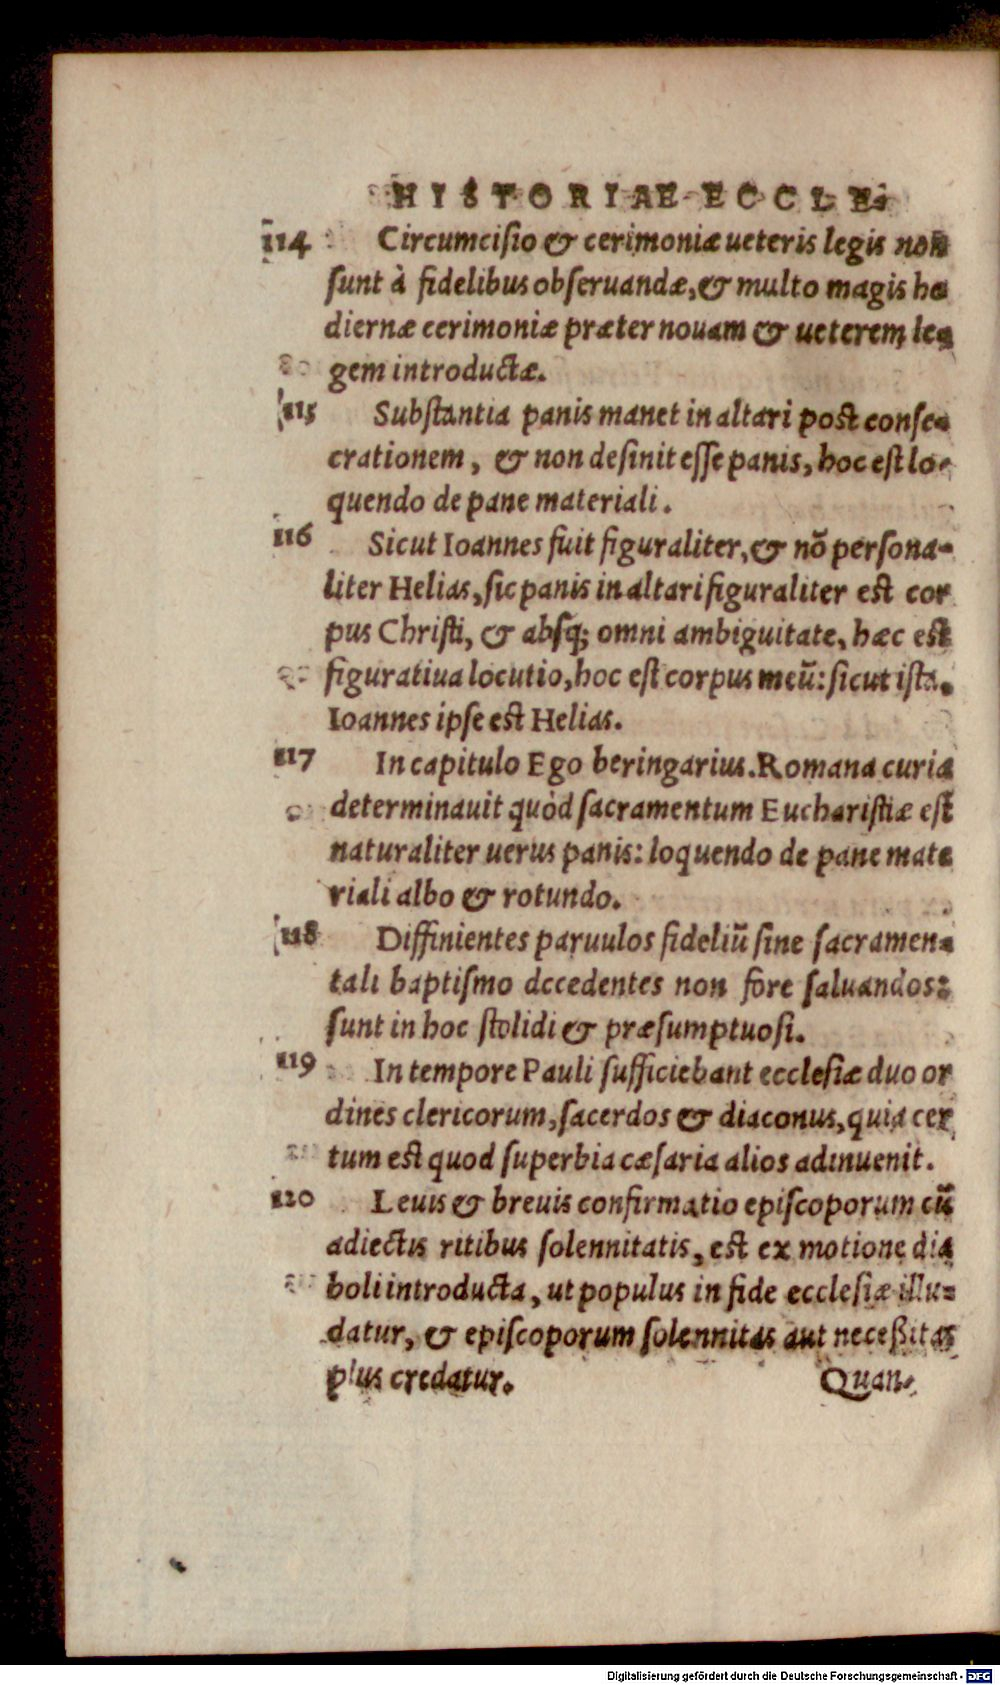 HISTORIAE ECCLE-
114 Circumcisio & cerimoniæ ueteris legis non
sunt à fidelibus obseruandæ, & multo magis ho
diernæ cerimoniæ præter nouam & ueterem le-
gem introductæ.
115 Substantia panis manet in altari post conse-
crationem, & non desinit esse panis, hoc est lo-
quendo de pane materiali.
116 Sicut Ioannes fuit figuraliter, & nõ persona-
liter Helias, sic panis in altari figuraliter est cor
pus Christi, & absq; omni ambiguitate, hæc est
figuratiua locutio, hoc est corpus meũ: sicut ista.
Ioannes ipse est Helias.
117 In capitulo Ego beringarius. Romana curia
determinauit quòd sacramentum Eucharistiæ est
naturaliter uerus panis: loquendo de pane mate
riali albo & rotundo.
118 Diffinientes paruulos fideliũ sine sacramen-
tali baptismo dccedentes non fore saluandos:
sunt in hoc stolidi & præsumptuosi.
119 In tempore Pauli sufficiebant ecclesiæ duo or
dines clericorum, sacerdos & diaconus, quia cer
tum est quod superbia cæsaria alios adinuenit.
120 Leuis & breuis confirmatio episcoporum cũ
adiectis ritibus solennitatis, est ex motione dia
boli introducta, ut populus in fide ecclesiæ illu-
datur, & episcoporum solennitas aut necessitas
plus credatur.
Quan-
Digitalisierung gefördert durch die Deutsche Forschungsgemeinschaft - DFG